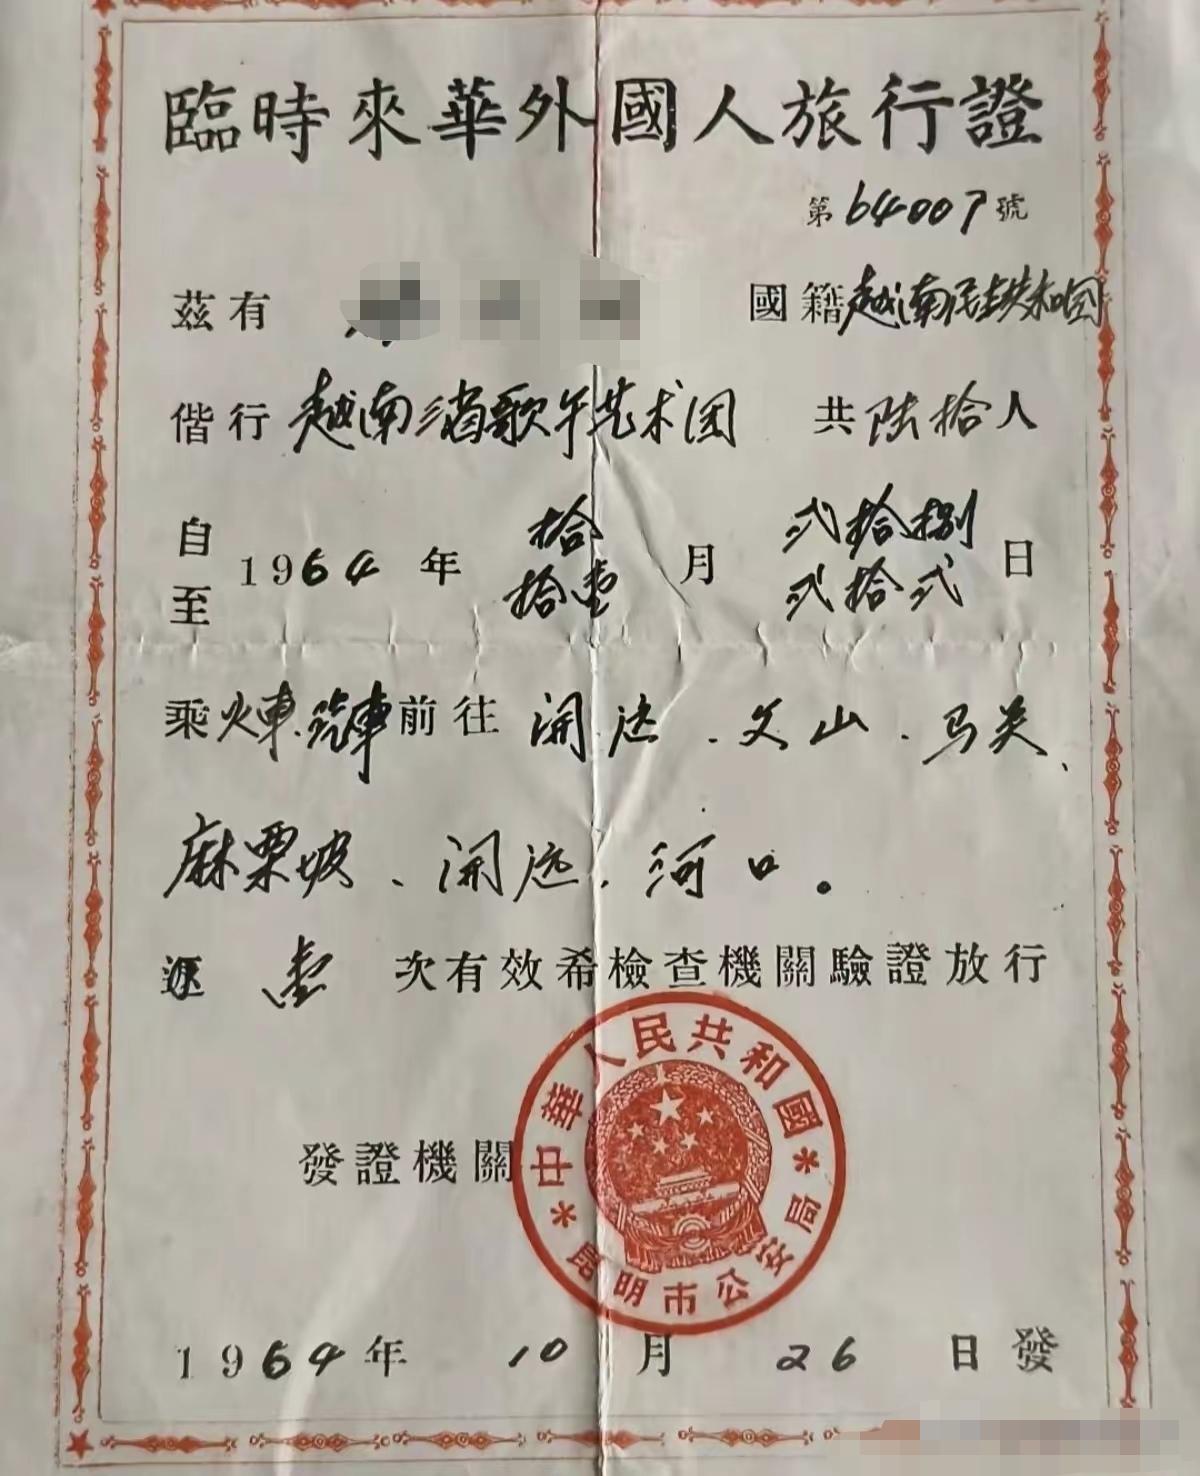 臨時來華外國人旅行證
第64007號
茲有 國籍越南民主共和國
偕行越南三省歌午艺术团 共陆拾人
自 1964年 拾 月 弍拾捌 日
至 拾壹 弍拾弍
乘火車、汽車前往 開远、文山、马关、
麻栗坡、開远、河口。
壹 次有效希檢查機關驗證放行
發證機關
中華人民共和國
昆明市公安局
1964年 10 月 26 日發